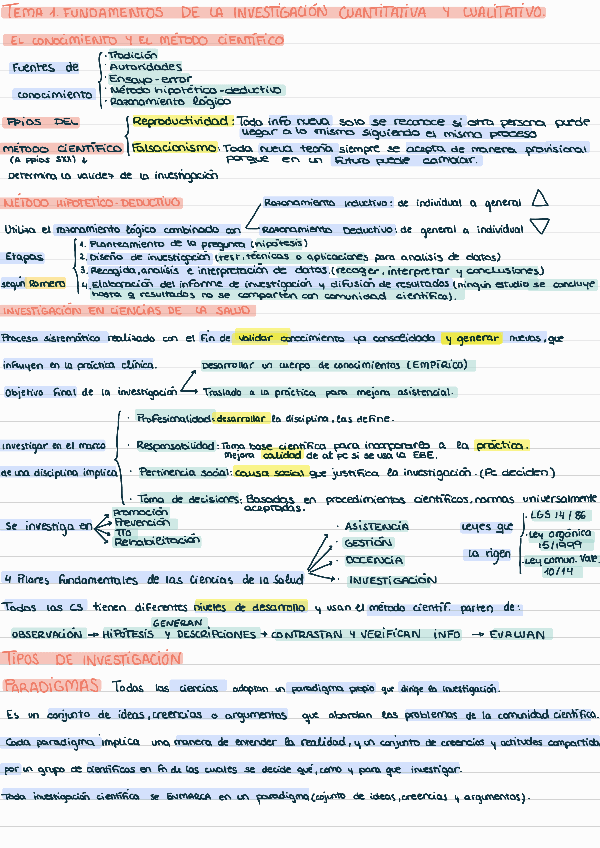 TEMA 1. FUNDAMENTOS DE LA INVESTIGACIÓN CUANTITATIVA Y CUALITATIVO.
EL CONOCIMIENTO Y EL MÉTODO CIENTÍFICO
Fuentes de conocimiento
· Tradición
· Autoridades
· Ensayo-error
· Método hipotético-deductivo
· Razonamiento lógico
PPIOS DEL MÉTODO CIENTÍFICO
(A ppios SXX) ↓
Determina la validez de la investigación
Reproductividad: Toda info nueva solo se reconoce si otra persona puede
llegar a lo mismo siguiendo el mismo proceso
Falsacionismo: Toda nueva teoría siempre se acepta de manera provisional
porque en un futuro puede cambiar.
MÉTODO HIPOTÉTICO-DEDUCTIVO
Utiliza el razonamiento lógico combinado con
Razonamiento inductivo: de individual a general △
Razonamiento Deductivo: de general a individual ▽
Etapas según Romero
1. Planteamiento de la pregunta (hipótesis)
2. Diseño de investigación (test, técnicas o aplicaciones para analisis de datos)
3. Recogida, analisis e interpretación de datos. (recoger, interpretar y conclusiones)
4. Elaboración del informe de investigación y difusión de resultados (ningún estudio se concluye
hasta q resultados no se comparten con comunidad científica).
INVESTIGACIÓN EN CIENCIAS DE LA SALUD
Proceso sistemático realizado con el fin de validar conocimiento ya consolidado y generar nuevos, que
influyen en la práctica clínica.
Objetivo final de la investigación
Desarrollar un cuerpo de conocimientos (EMPÍRICO)
Traslado a la práctica para mejora asistencial.
Investigar en el marco
de una disciplina implica
· Profesionalidad: desarrollar la disciplina, las define.
· Responsabilidad: Toma base científica para incorporarlo a la práctica.
Mejora calidad de at pc si se usa la EBE.
· Pertinencia social: causa social que justifica la investigación. (Pc deciden)
· Toma de decisiones: Basadas en procedimientos científicos, normas universalmente
aceptadas.
Se investiga en
Promoción
Prevención
TTO
Rehabilitación
4 Pilares fundamentales de las Ciencias de la Salud
· ASISTENCIA
· GESTIÓN
· DOCENCIA
· INVESTIGACIÓN
Leyes que la rigen
· LGS 14/86
· Ley orgánica
15/1999
· Ley comun. Vale.
10/14
Todas las CS tienen diferentes niveles de desarrollo y usan el método científ. parten de:
OBSERVACIÓN → GENERAN HIPÓTESIS Y DESCRIPCIONES → CONTRASTAN Y VERIFICAN INFO → EVALUAN
TIPOS DE INVESTIGACIÓN
PARADIGMAS Todas las ciencias adoptan un paradigma propio que dirige la investigación.
Es un conjunto de ideas, creencias o argumentos que abordan los problemas de la comunidad científica.
Cada paradigma implica una manera de entender la realidad, y un conjunto de creencias y actitudes compartida
por un grupo de científicos en fn de los cuales se decide qué, como y para que investigar.
Toda investigación científica se ENMARCA en un paradigma (cojunto de ideas, creencias y argumentos).